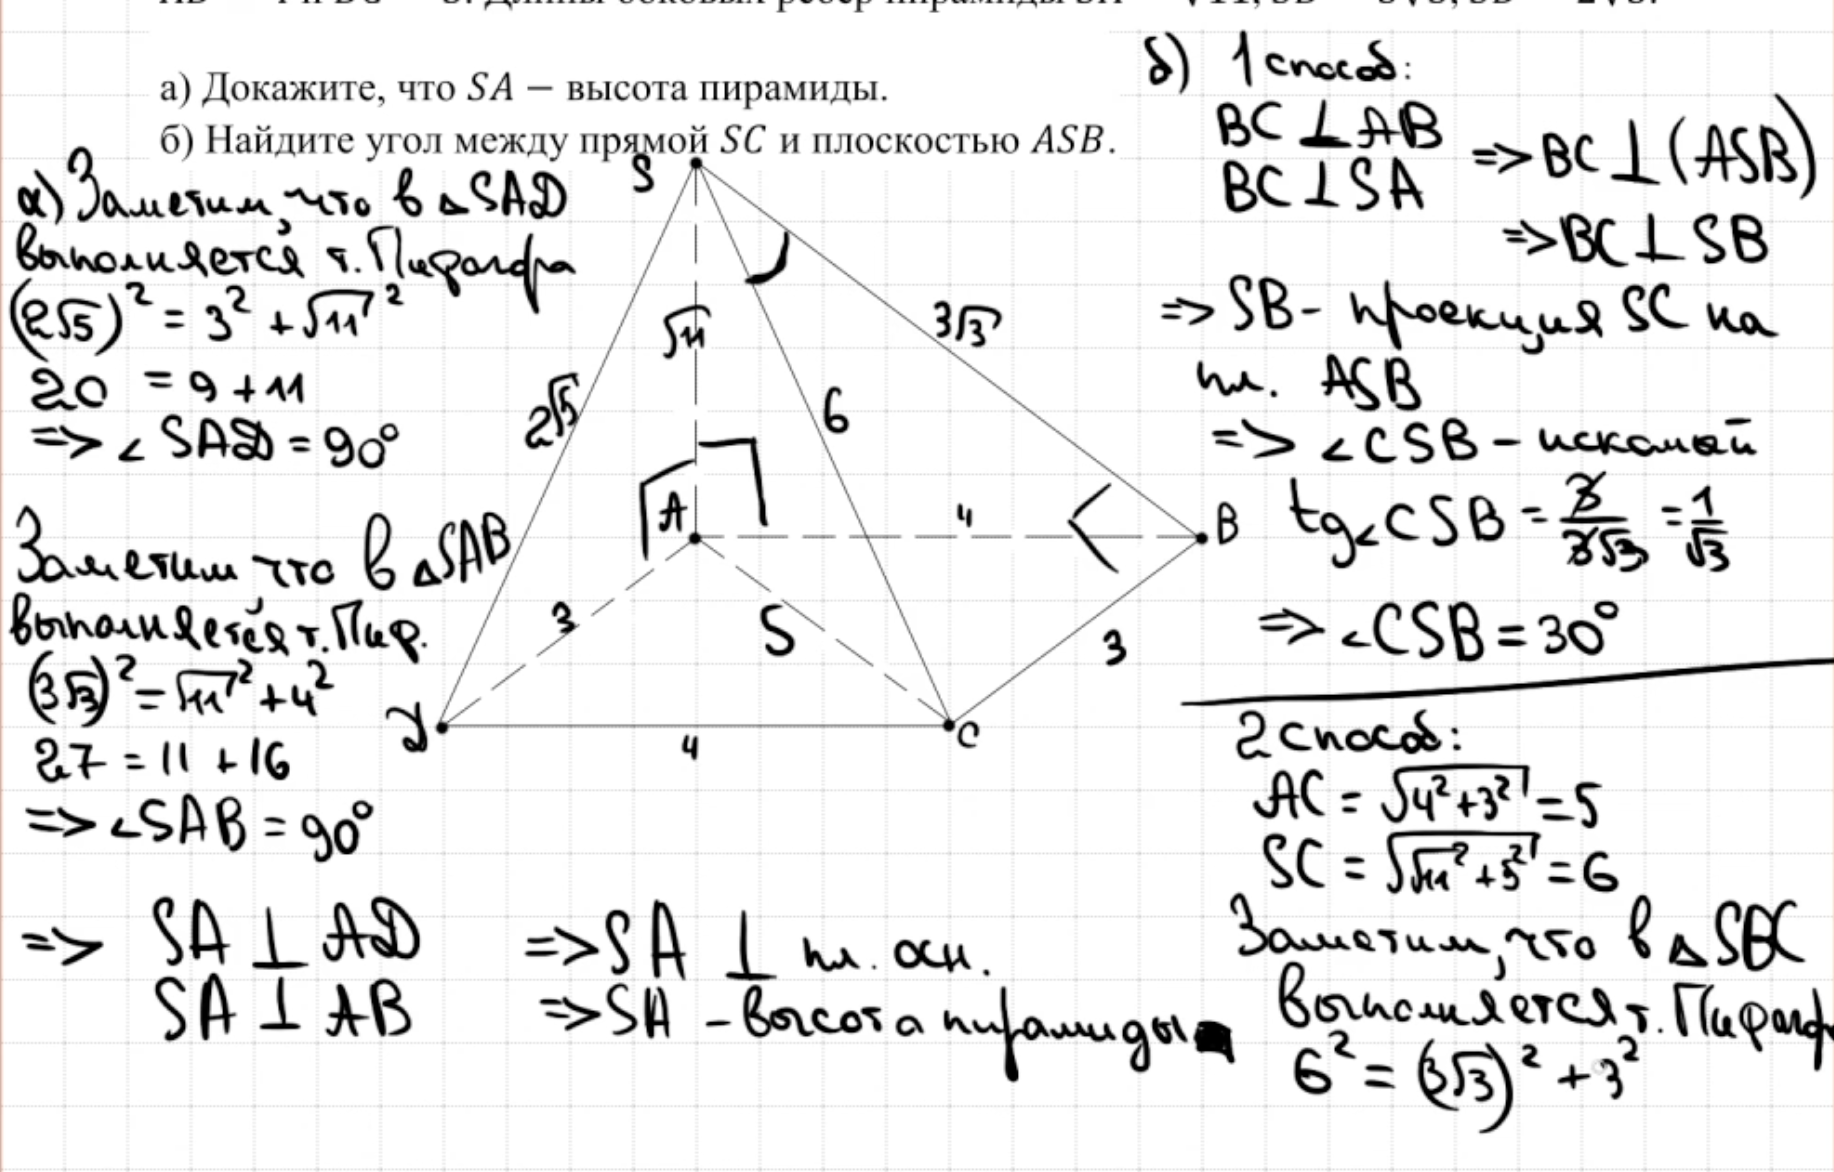 а) Докажите, что SA − высота пирамиды.
б) Найдите угол между прямой SC и плоскостью ASB.
а) Заметим, что в △SAD
выполняется т. Пифагора
(2√5)² = 3² + √11²
20 = 9 + 11
=> ∠SAD = 90°
Заметим что в △SAB
выполняется т. Пиф.
(3√3)² = √11² + 4²
27 = 11 + 16
=> ∠SAB = 90°
=> SA ⊥ AD
SA ⊥ AB
=> SA ⊥ пл. осн.
=> SA – высота пирамиды
S
√11
3√3
2√5
6
A
4
B
3
5
3
D
4
C
б) 1 способ:
BC ⊥ AB
BC ⊥ SA
=> BC ⊥ (ASB)
=> BC ⊥ SB
=> SB – проекция SC на
пл. ASB
=> ∠CSB – искомый
tg∠CSB = 3/3√3 = 1/√3
=> ∠CSB = 30°
2 способ:
AC = √4²+3² = 5
SC = √√11²+5² = 6
Заметим, что в △SBC
выполняется т. Пифагора
6² = (3√3)² + 3²